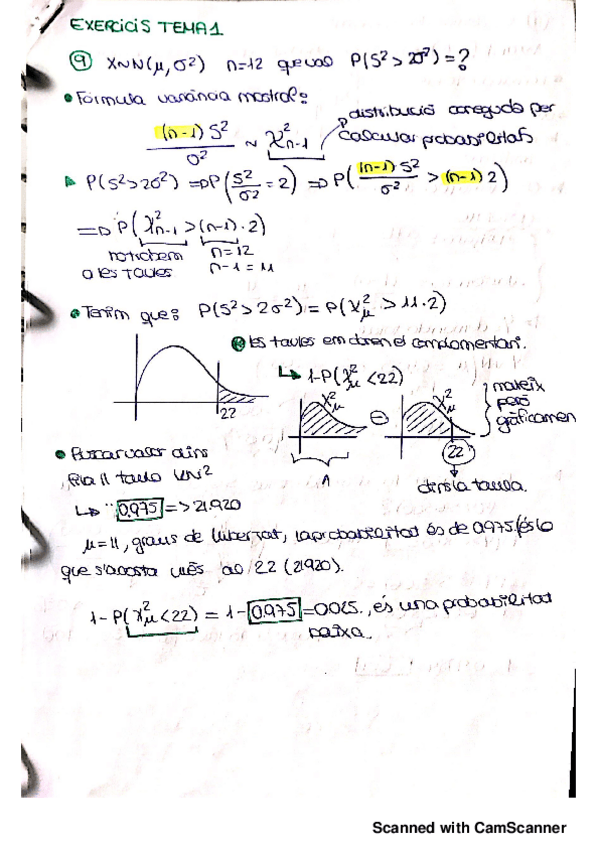 EXERCICIS TEMA 1
⑨ X~N(μ, σ²) n=12 que val P(S² > 2σ²) = ?
• Fórmula variància mostral:
(n-1) S² / σ² ~ X²n-1
distribució coneguda per
calcular probabilitats
P(S² > 2σ²) => P(S²/σ² = 2) => P((n-1) S²/σ² > (n-1) 2)
=> P(X²n-1 > (n-1)·2)
n=12
a les taules n-1 = 11
• Tenim que: P(S² > 2σ²) = P(X²11 > 11·2)
les taules em donen el complementari.
↳ 1-P(X²11 < 22)
22
X²11 ⊖ X²11
mateix
però
gràficament
1
22
dins la taula.
• Buscar valor dins
fila 11 taula
↳ 0.975 => 21.920
11 = 11, graus de llibertat, la probabilitat és de 0.975 (és lo
que s'acosta més al 22 (21920).
1 - P(X²11 < 22) = 1 - 0.975 = 0.025, és una probabilitat
baixa.
Scanned with CamScanner